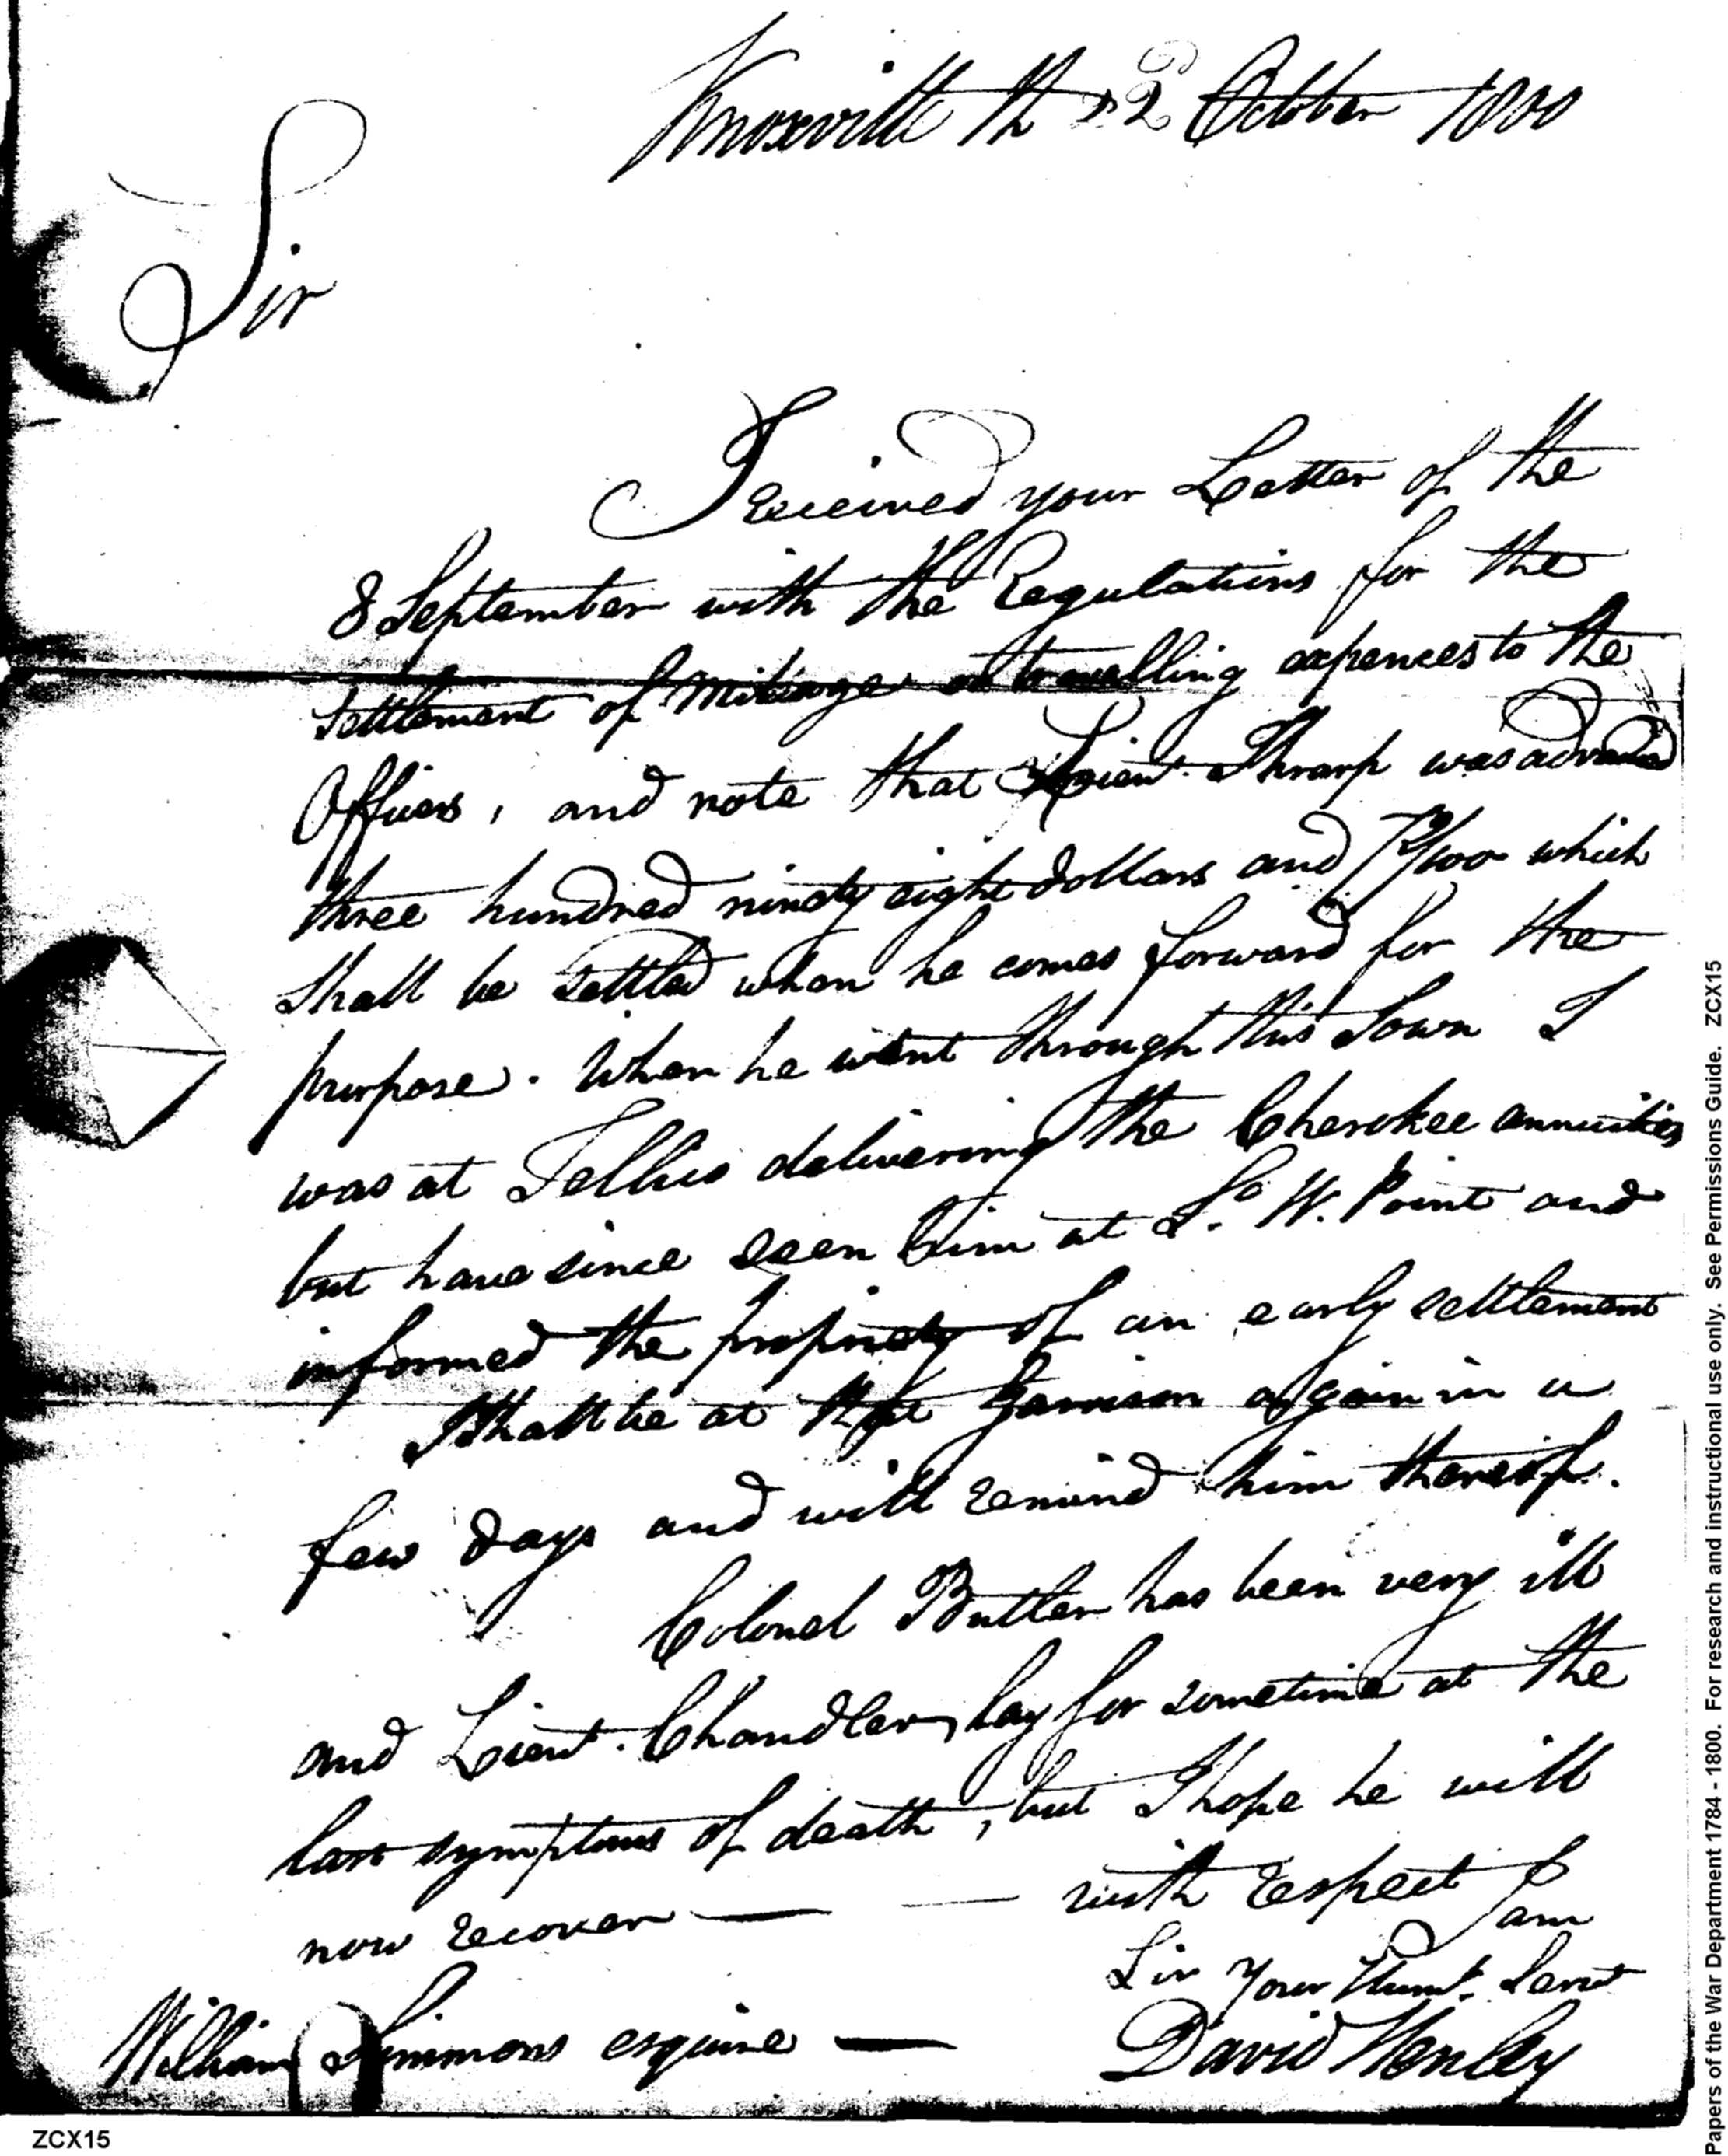 Knoxville th 22 October 1800
Sir
I received your Letter of the
8 September with the Regulations for the
settlement of Mileage or travelling expences to the
Officers, and note that Lieut. Tharp was advanced
three hundred ninety eight dollars and /100 which
shall be settled when he comes forward for the
purpose. When he went through this Town I
was at Tellico delivering the Cherokee annuities
but have since seen him at So. W. Point and
informed the propriety of an early settlement
I shall be at that Garrison again in a
few days and will remind him thereof.
Colonel Butler has been very ill
and Lieut. Chandler, lay for sometime at the
last symptoms of death, but I hope he will
now recover — — with respect I am
Sir Your Humt. Servt
William Simmons esquire — David Henley
ZCX15
Papers of the War Department 1784 - 1800. For research and instructional use only. See Permissions Guide. ZCX15